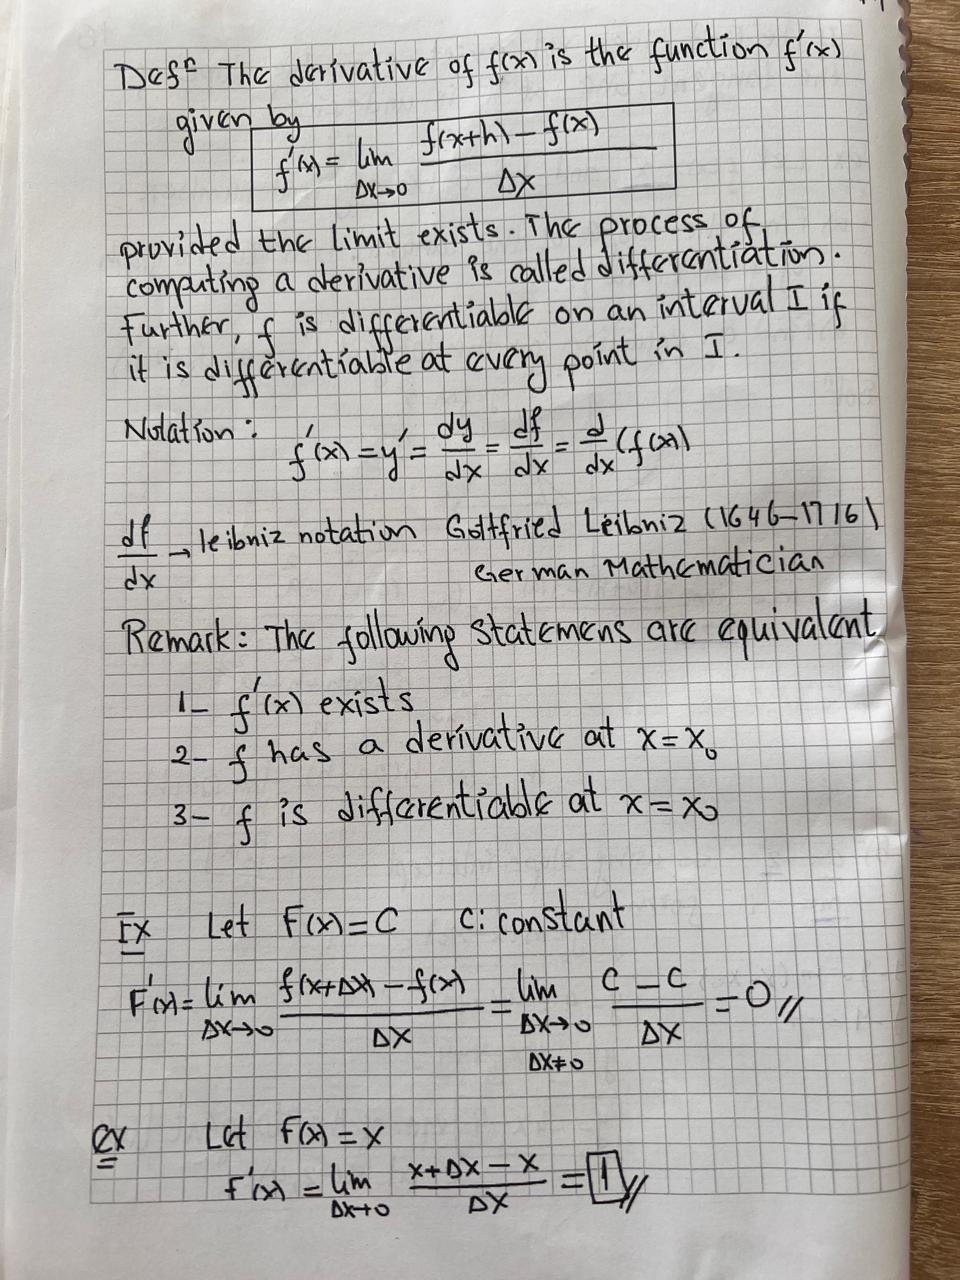 Defⁿ The derivative of f(x) is the function f'(x)
given by
f'(x) = lim Δx→0 (f(x+h) - f(x)) / Δx
provided the limit exists. The process of
computing a derivative is called differentiation.
Further, f is differentiable on an interval I if
it is differentiable at every point in I.
Notation: f'(x) = y' = dy/dx = df/dx = d/dx (f(x))
df/dx → leibniz notation Gottfried Leibniz (1646-1716)
German Mathematician
Remark: The following statemens are equivalent
1- f'(x) exists
2- f has a derivative at x = x₀
3- f is differentiable at x = x₀
Ex Let F(x) = C C: constant
F'(x) = lim Δx→0 (f(x+Δx) - f(x)) / Δx = lim Δx→0 Δx≠0 (C - C) / Δx = 0 //
ex Let f(x) = x
f'(x) = lim Δx→0 (x+Δx - x) / Δx = 1 //